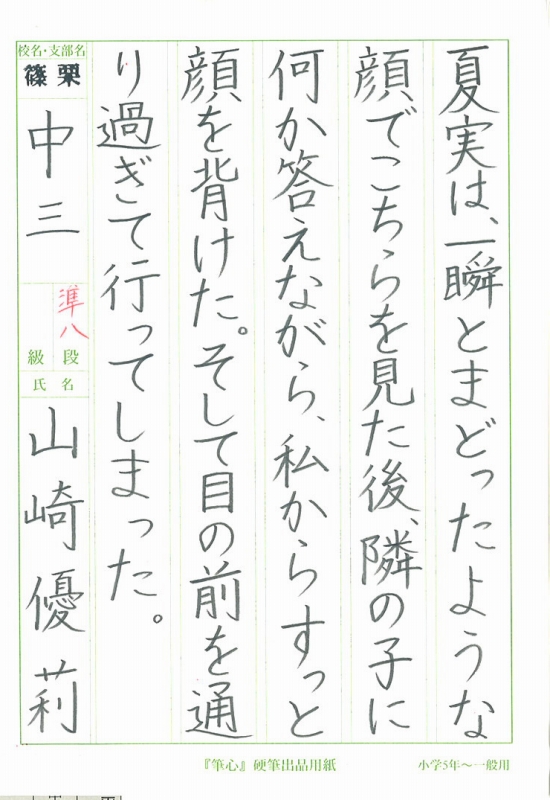 夏実は、一瞬とまどったような
顔でこちらを見た後、隣の子に
何か答えながら、私からすっと
顔を背けた。そして目の前を通
り過ぎて行ってしまった。
校名・支部名
篠栗
中三
準八
級段
氏名
山崎優莉
『筆心』硬筆出品用紙
小学5年〜一般用